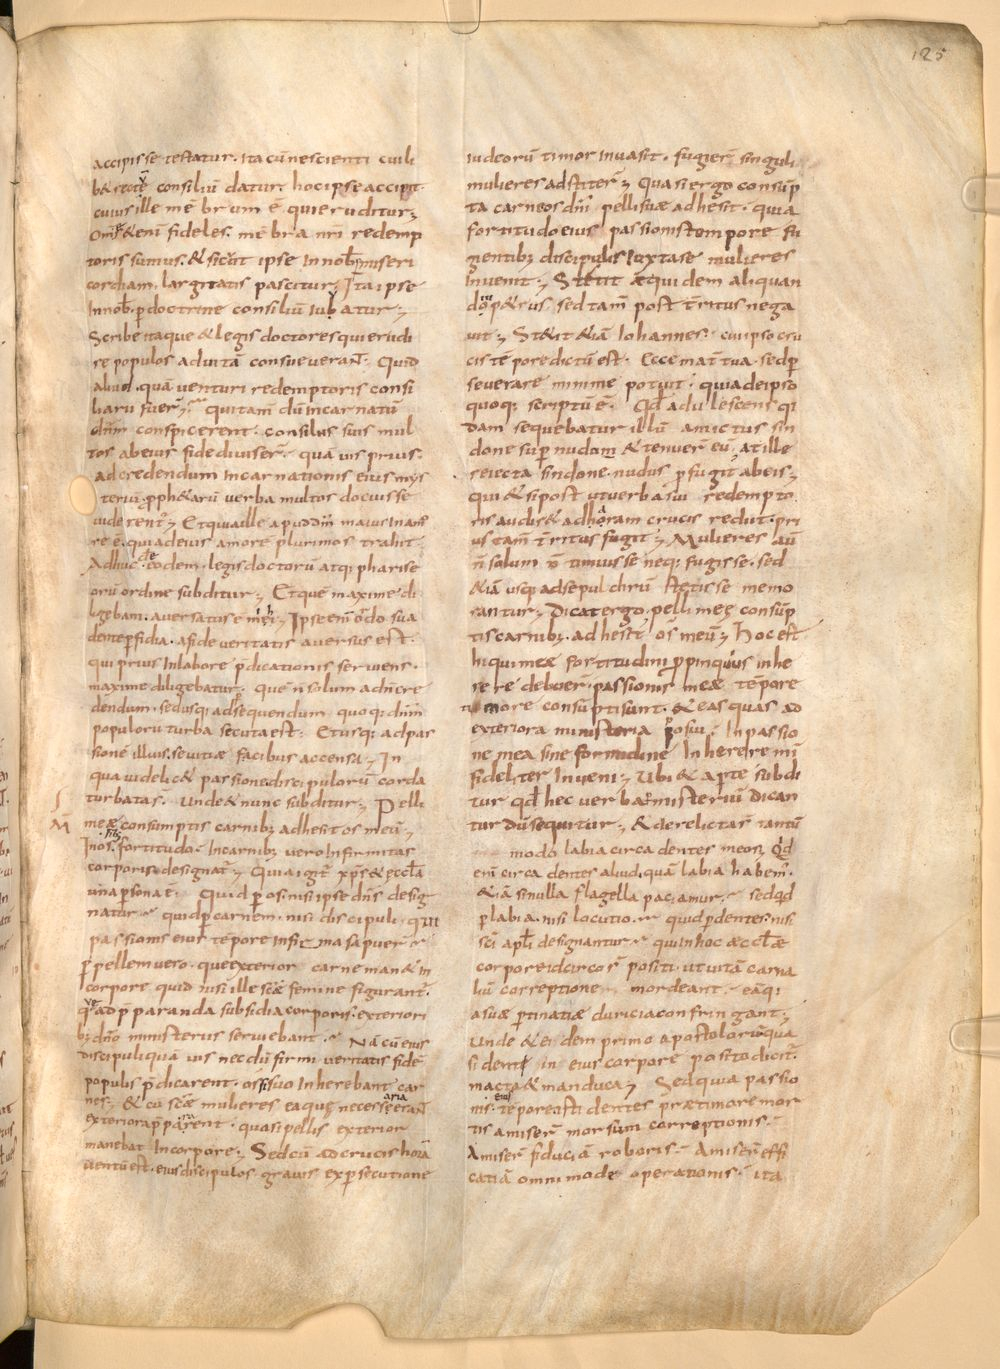 125
accipisse testatur. Ita cū nescienti civili
b& recte consiliū datur. hoc ipse accipit.
cuius ille mēbrum ē. qui eruditur;
Om̄s &enī fideles. mēbra nr̄i redemp
toris sumus. & sicut ipse In nob̄ miseri
cordiam. largitatis pascitur; Ita ipse
In nob̄. p doctrine consiliū Iubatur;
Scribe itaque & legis doctores qui erudi
re populos ad vitā consueverant̄. Quid
aliud. quā venturi redemptoris consi
liarii fuer̄; qui tam̄ dū Incarnatū
dn̄m conspicerent. consiliis suis mul
tos ab eius fide diviser̄. quā vis prius.
ad credendum Incarnationis eius mys
teriū. pph&arū verba multos docuisse
viderent̄; Et quia ille apud dm̄ maius In am̄
re ē. qui ad eius amorē plurimos trahit.
Adhuc de eodem. legis doctorū atq; pharise
orū ordine subditur; Et quē maxime di
ligebam. aversatus ē mei; Ipse enī ordo sua
dente pfidia. a fide veritatis aversus est.
qui prius In labore p̄dicationis serviens.
maxime diligebatur. quē n̄ solum ad n̄ cre
dendum. sed usq; ad psequendum quoq; dn̄m
populorū turba secuta est. Et usq; ad pas
sionē illius. sevitiæ facibus accensa; In
qua videlic& passione discipulorū corda
turbatas̄. Unde & nunc subditur; Pelli
meæ consumptis carnibz adhesit os meū;
In os. fortitudo. In carnibz vero Infirmitas
corporis designat̄; Quia igit̄ xp̄s & eccl̄a
una psona ē. Quid p os. nisi ipse dn̄s desig
natur. quid p carnem. nisi discipuli. qui
passionis eius tēpore Infirma sapuer̄
p pellem vero. que exterior carne man& In
corpore quid nisi ille sc̄æ femine figurant̄.
quæ ad p̄paranda subsidia corporis. exteriori
bz dn̄o ministeriis serviebant. Nā cū eius
discipuli quā vis nec dū firmi veritatis fidē
populis p̄dicarent. ossi suo Inherebant car
nes; & cū sc̄æ mulieres ea quæ necessaria erant̄
exteriora p̄pararent. quasi pellis exterior
manebat In corpore; Sed cū ad crucis horā
ventū est. eius discipulos. gravis ex psecutione
iudeorū timor Invasit. fugier̄ singuli
mulieres adstiter̄; Quasi ergo consūp
ta carne os dn̄i pelli suæ adhesit. quia
fortitudo eius passionis tempore fu
gientibz discipulis Iuxta se mulieres
Invenit; Stetit & quidem aliquan
diu p&rus. sed tam̄ post t̄ritus nega
vit; St&it &iā Iohannes. cui ipso cru
cis tēpore dictū est. Ecce mat̄ tua. sed p
severare minime potuit. quia de ipso
quoq; scriptū ē. Qd̄ adulescens qi
dam sequebatur illū amictus sin
done sup nudum & tenuer̄ eū. at ille
reiecta sindone. nudus pfugit ab eis;
Qui & si post ut verba sui redempto
ris audis& ad horam crucis rediit. pri
us tam̄ t̄ritus fugit; Mulieres aū
n̄ solum n̄ timuisse neq; fugisse. sed
&iā usq; ad sepulchrū stetisse memo
rantur; Dicat ergo. pelli meæ consūp
tis carnibz. adhesit os meū; Hoc est
hi qui meæ fortitudini ppinquius inhe
rere debuer̄. passionis meæ tēpore
timore consūpti sunt. & eas quas ad
exteriora ministeria posui. In passio
ne mea sine formidine Inherere mi
fidelit̄er Inveni; Ubi & apte subdi
tur qd̄ hec verba misteriū dican
tur dū sequitur; & derelicta s̄ tantū
modo labia circa dentes meos; Qd̄
enī circa dentes aliud. quā labia habem̄.
&iā si nulla flagella paciamur. sed qd̄
p labia. nisi locutio. quid p dentes. nisi
sc̄i apl̄i designantur. qui in hoc æccl̄æ
corpore idcirco s̄ positi. ut vitā carna
liū correptione mordeant. eāq;
a suæ ptinatiæ duricia confringant;
Unde & eidem primo apostolorū. qua
si denti in eius corpore posito dicit̄.
macta & manduca; Sed quia passio
nis eius tēpore isti dentes præ timore mor
tis amiser̄ morsum correptionis.
Amiser̄ fiduciā roboris. Amiser̄ effi
catiā omnimode operationis. ita